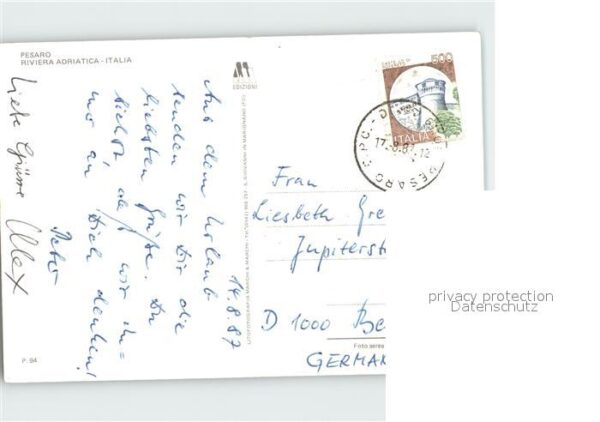 PESARO
RIVIERA ADRIATICA - ITALIA
EDIZIONI
500
ITALIA
PESARO
17.8.87
14.8.87
Aus dem Urlaub
senden wir Dir die
liebsten Grüße. Du
siehst, daß wir im=
mer an Dich denken!
Peter
Liebe Grüsse Alex
Frau
Liesbeth Gre
Jupiterst
D 1000 Be
GERMAN
Foto aerea
P. 94
privacy protection
Datenschutz